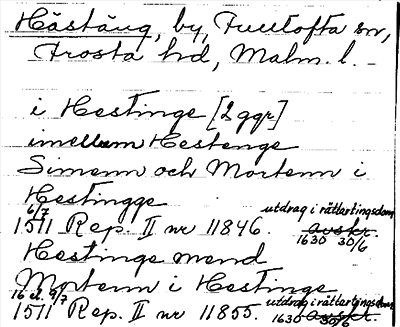 Hästäng, by, Fulltofta sn,
Frosta hd, Malm. l.
i Hestinge [2 ggr]
imellum Hestenge
Simenn och Mortenn i
Hestingge
6/7 utdrag i rättertingsdom
1511 Rep. II nr 11846. avskr. 1630 30/6
Hestinge mend
Mortenn i Hestinge
16 el. 9/7 utdrag i rättertingsdom
1511 Rep. II nr 11855. avskr. 1630 30/6